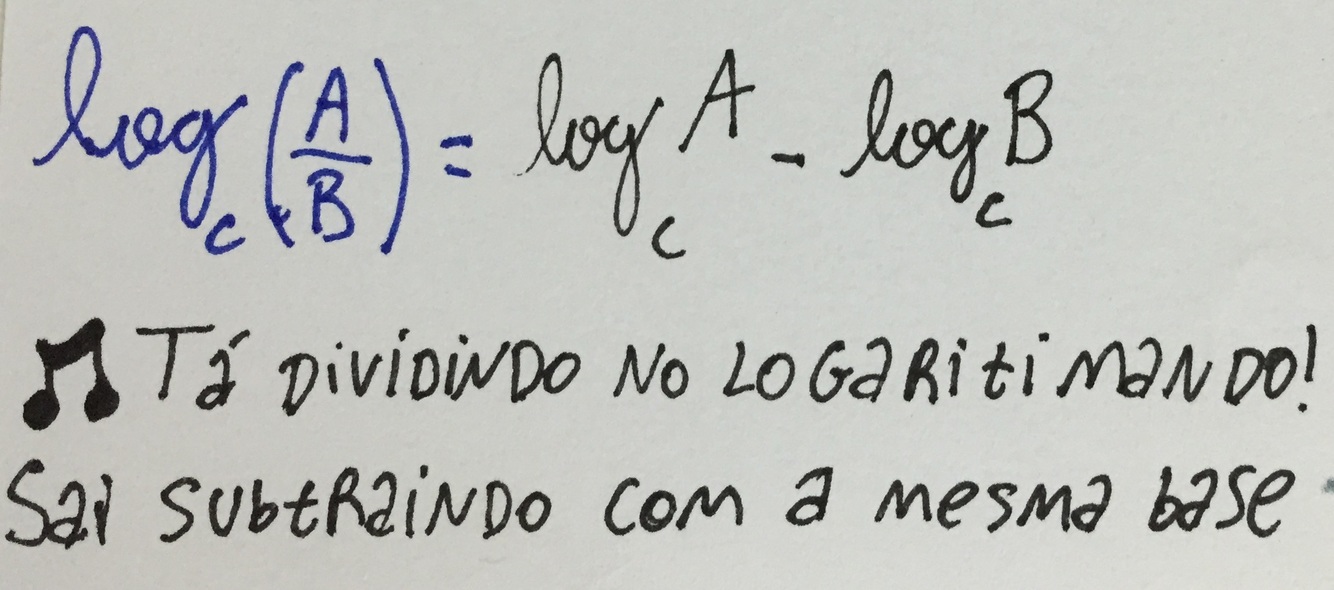 log_c (A/B) = log_c A - log_c B
♫ Tá DiviDiNDO NO LOGaRitiMaNDO!
Sai SUbtRaiNDO COM a mesma base